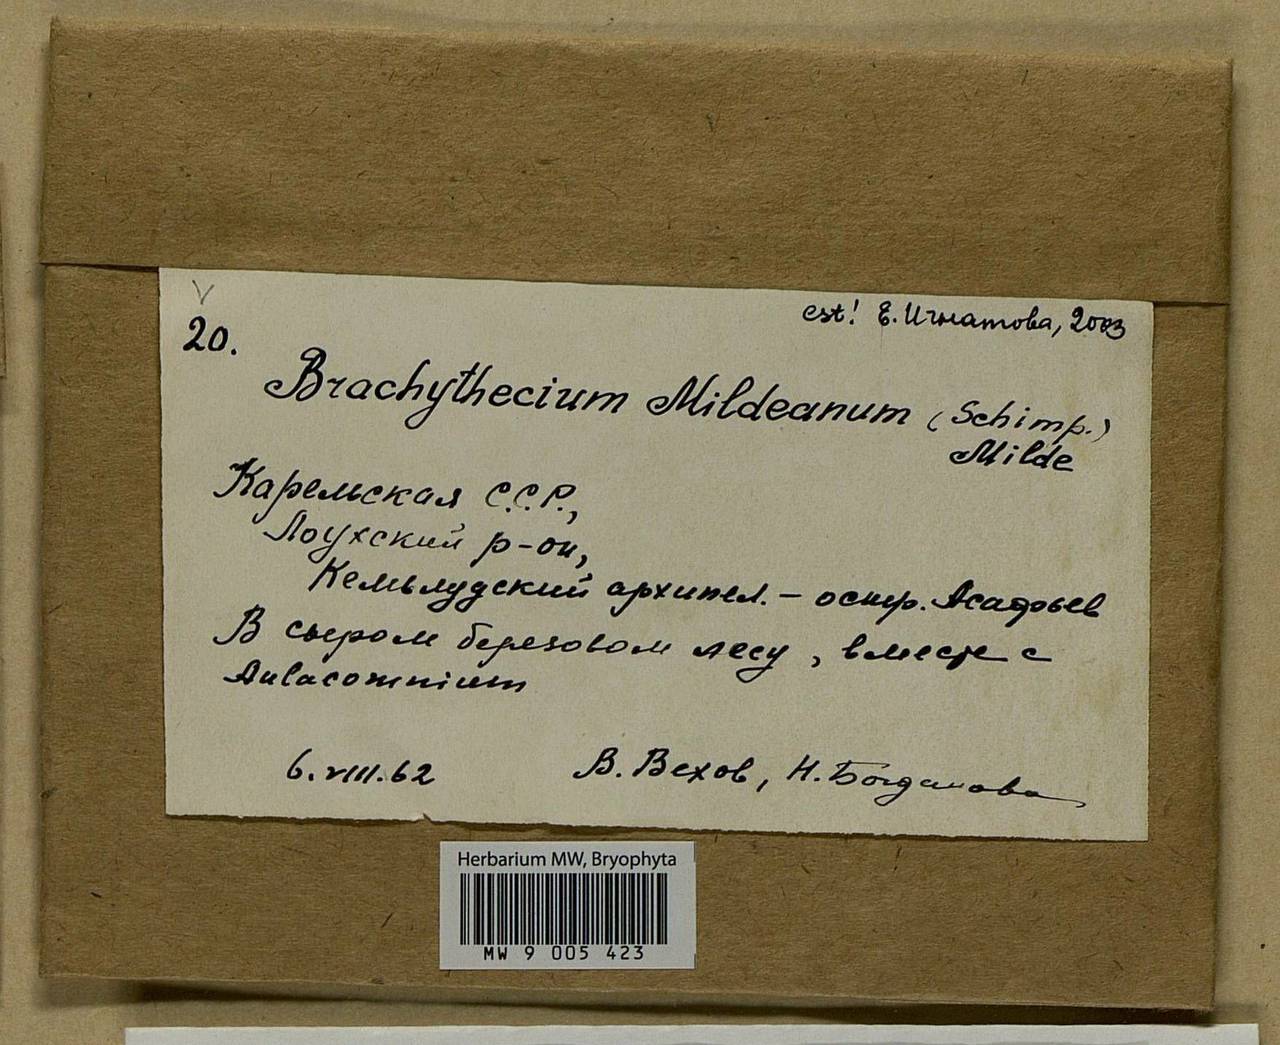 V
est! Е. Игнатова, 2003
20.
Brachythecium Mildeanum (Schimp.)
Milde
Карельская С.С.Р.,
Лоухский р-он,
Кемьлудский архипел. – остр. Асафьев
В сыром березовом лесу, вместе с
Aulacomnium
6.VIII.62 В. Вехов, Н. Богданова
Herbarium MW, Bryophyta
MW 9 005 423